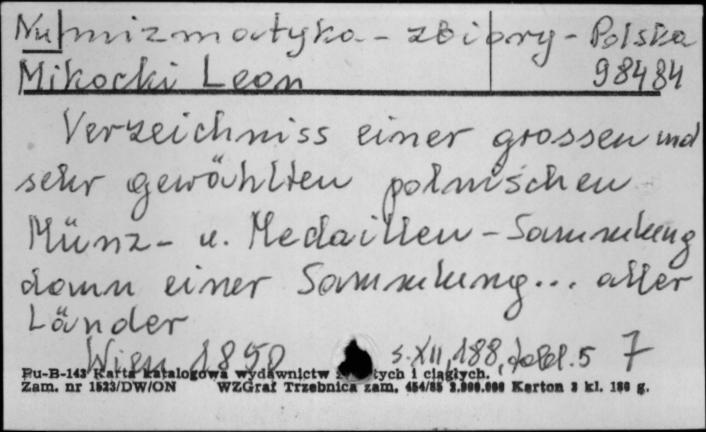 Numizmatyka - zbiory - Polska
Mikocki Leon 98484
Verzeichniss einer grossen und
sehr gewählten polnischen
Münz- u. Medaillen - Sammlung
dann einer Sammlung... aller
Länder
Wien 1850 s. XII, 188, tabl. 5 7
Pu-B-143 Karta katalogowa wydawnictw tych i ciągłych.
Zam. nr 1523/DW/ON WZGraf Trzebnica zam. 454/85 2.000.000 Karton 3 kl. 180 g.